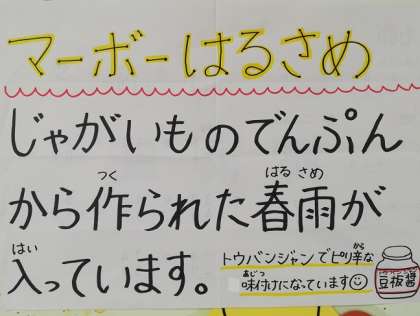 マーボーはるさめ
じゃがいものでんぷん
つく はる さめ
から作られた春雨が
はい
入っています。
から
トウバンジャンでピリ辛な
あじつ
味付けになっています☺
豆板醤